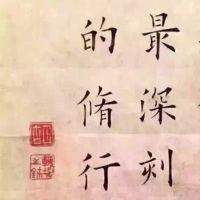 最深刻
的脩行